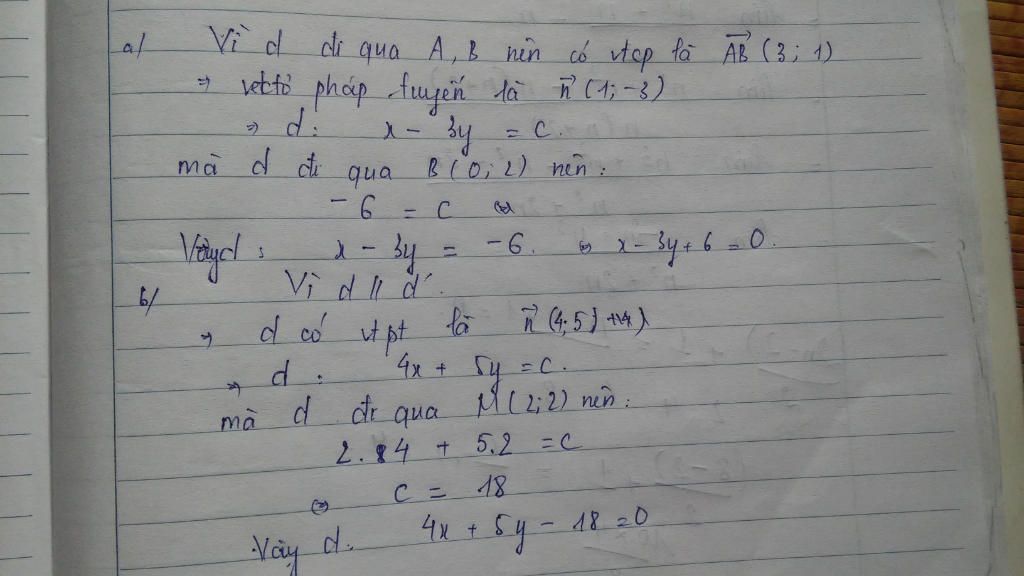 a/ Vì d đi qua A, B nên có vtcp là AB→ (3; 1)
⇒ vectơ pháp tuyến là n→ (1; -3)
⇒ d: x - 3y = c.
mà d đi qua B(0; 2) nên:
-6 = c ⇔
Vậy d: x - 3y = -6. ⇔ x - 3y + 6 = 0.
b/ Vì d // d'.
⇒ d có vtpt là n→ (4; 5)
⇒ d: 4x + 5y = c.
mà d đi qua M(2; 2) nên:
2. 4 + 5.2 = c
⇔ c = 18
Vậy d: 4x + 5y - 18 = 0